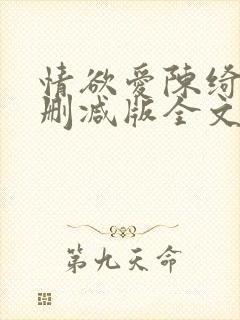 情欲爱陈绮
删减版全文
第九天命